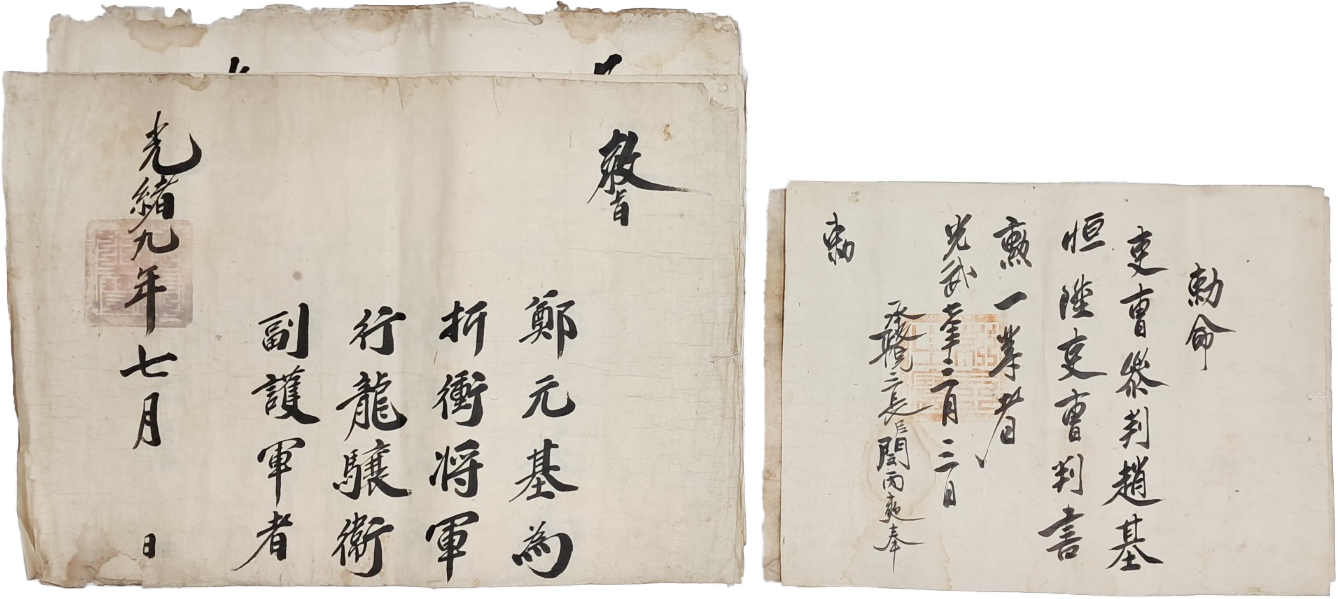 敎旨
鄭元基為
折衝将軍
行龍驤衛
副護軍者
光緒九年七月 日
勅命
吏曹叅判趙基
恒陞吏曹判書
勲一等者
光武年三月三日
長臣閔丙奭奉
勅